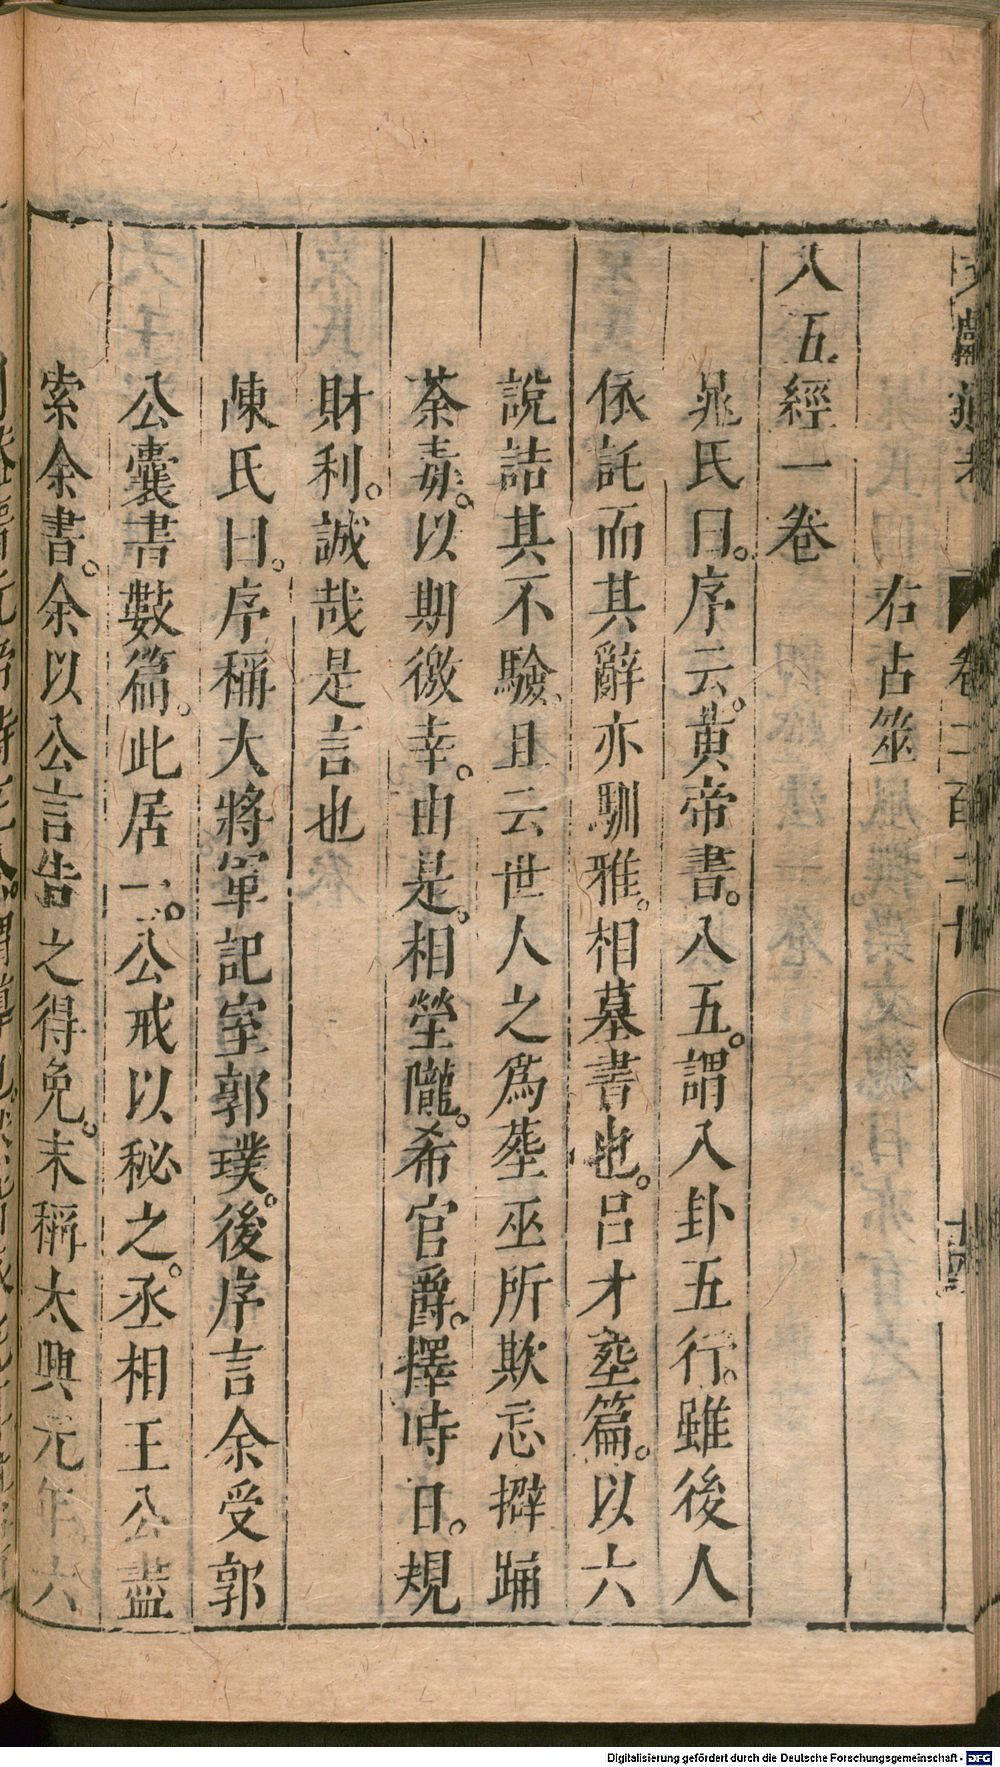 文獻通考 卷二百二十 十四
右占筮
八五經一卷
晁氏曰。序云。黃帝書。八五。謂八卦五行。雖後人
依託而其辭亦馴雅。相墓書也。呂才塟篇。以六
說詰其不驗。且云世人之爲塟巫所欺忘擗踊
荼毒。以期徼幸。由是。相塋隴。希官爵。擇時日。規
財利。誠哉是言也
陳氏曰。序稱大將軍記室郭璞。後序言余受郭
公囊書數篇。此居一。公戒以秘之。丞相王公盡
索余書。余以公言告之得免。末稱太興元年六
Digitalisierung gefördert durch die Deutsche Forschungsgemeinschaft - DFG